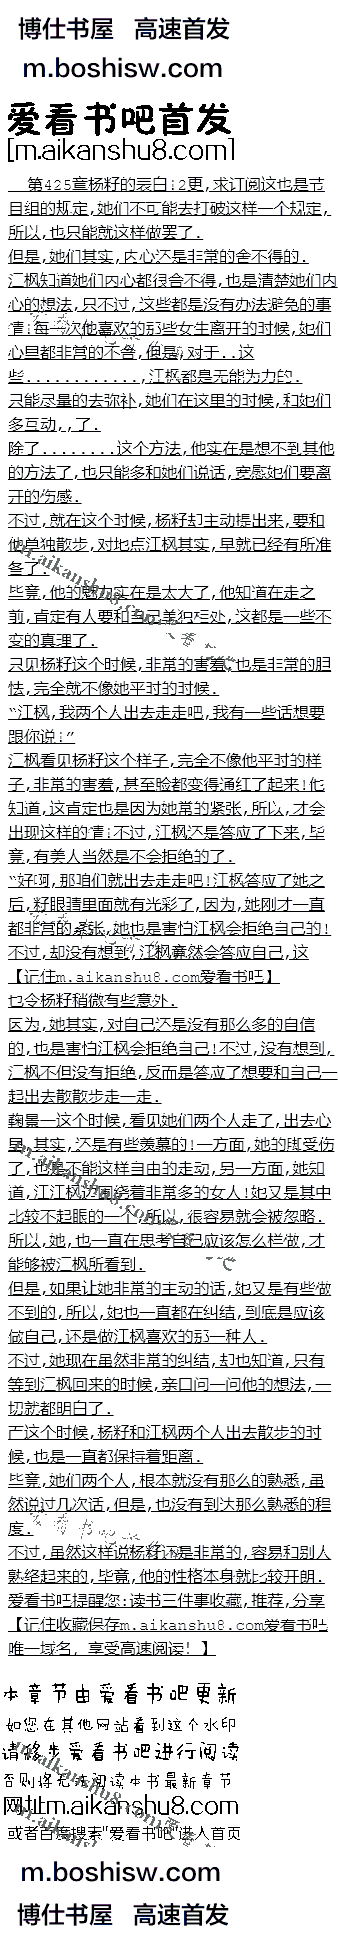 博仕书屋 高速首发
m.boshisw.com
爱看书吧首发
[m.aikanshu8.com]
第425章杨籽的表白!2更,求订阅这也是节
目组的规定,她们不可能去打破这样一个规定,
所以,也只能就这样做罢了.
但是,她们其实,内心还是非常的舍不得的.
江枫知道她们内心都很舍不得,也是清楚她们内
心的想法,只不过,这些都是没有办法避免的事
情!每一次他喜欢的那些女生离开的时候,她们
心里都非常的不舍,但是,对于..这
些............,江枫都是无能为力的.
只能尽量的去弥补,她们在这里的时候,和她们
多互动,,了.
除了........这个方法,他实在是想不到其他
的方法了,也只能多和她们说话,宽慰她们要离
开的伤感.
不过,就在这个时候,杨籽却主动提出来,要和
他单独散步,对地点江枫其实,早就已经有所准
备了.
毕竟,他的魅力实在是太大了,他知道在走之
前,肯定有人要和自己单独相处,这都是一些不
变的真理了.
只见杨籽这个时候,非常的害羞,也是非常的胆
怯,完全就不像她平时的时候.
“江枫,我两个人出去走走吧,我有一些话想要
跟你说!”
江枫看见杨籽这个样子,完全不像他平时的样
子,非常的害羞,甚至脸都变得通红了起来!他
知道,这肯定也是因为她常的紧张,所以,才会
出现这样的情!不过,江枫还是答应了下来,毕
竟,有美人当然是不会拒绝的了.
“好啊,那咱们就出去走走吧!江枫答应了她之
后,籽眼睛里面就有光彩了,因为,她刚才一直
都非常的紧张,她也是害怕江枫会拒绝自己的!
不过,却没有想到,江枫竟然会答应自己,这
【记住m.aikanshu8.com爱看书吧】
也令杨籽稍微有些意外.
因为,她其实,对自己还是没有那么多的自信
的,也是害怕江枫会拒绝自己!不过,没有想到,
江枫不但没有拒绝,反而是答应了想要和自己一
起出去散散步走一走.
鞠景一这个时候,看见她们两个人走了,出去心
里,其实,还是有些羡慕的!一方面,她的脚受伤
了,也是不能这样自由的走动,另一方面,她知
道,江江枫边围绕着非常多的女人!她又是其中
比较不起眼的一个,所以,很容易就会被忽略.
所以,她,也一直在思考自己应该怎么样做,才
能够被江枫所看到.
但是,如果让她非常的主动的话,她又是有些做
不到的,所以,她也一直都在纠结,到底是应该
做自己,还是做江枫喜欢的那一种人.
不过,她现在虽然非常的纠结,却也知道,只有
等到江枫回来的时候,亲口问一问他的想法,一
切就都明白了.
而这个时候,杨籽和江枫两个人出去散步的时
候,也是一直都保持着距离.
毕竟,她们两个人,根本就没有那么的熟悉,虽
然说过几次话,但是,也没有到达那么熟悉的程
度.
不过,虽然这样说杨籽还是非常的,容易和别人
熟络起来的,毕竟,他的性格本身就比较开朗.
爱看书吧提醒您:读书三件事收藏,推荐,分享
【记住收藏保存m.aikanshu8.com爱看书吧
唯一域名，享受高速阅读！】
本章节由爱看书吧更新
如您在其他网站看到这个水印
请移步爱看书吧进行阅读
否则将无法阅读本书最新章节
网址m.aikanshu8.com
或者百度搜索"爱看书吧"进入首页
m.boshisw.com
博仕书屋 高速首发